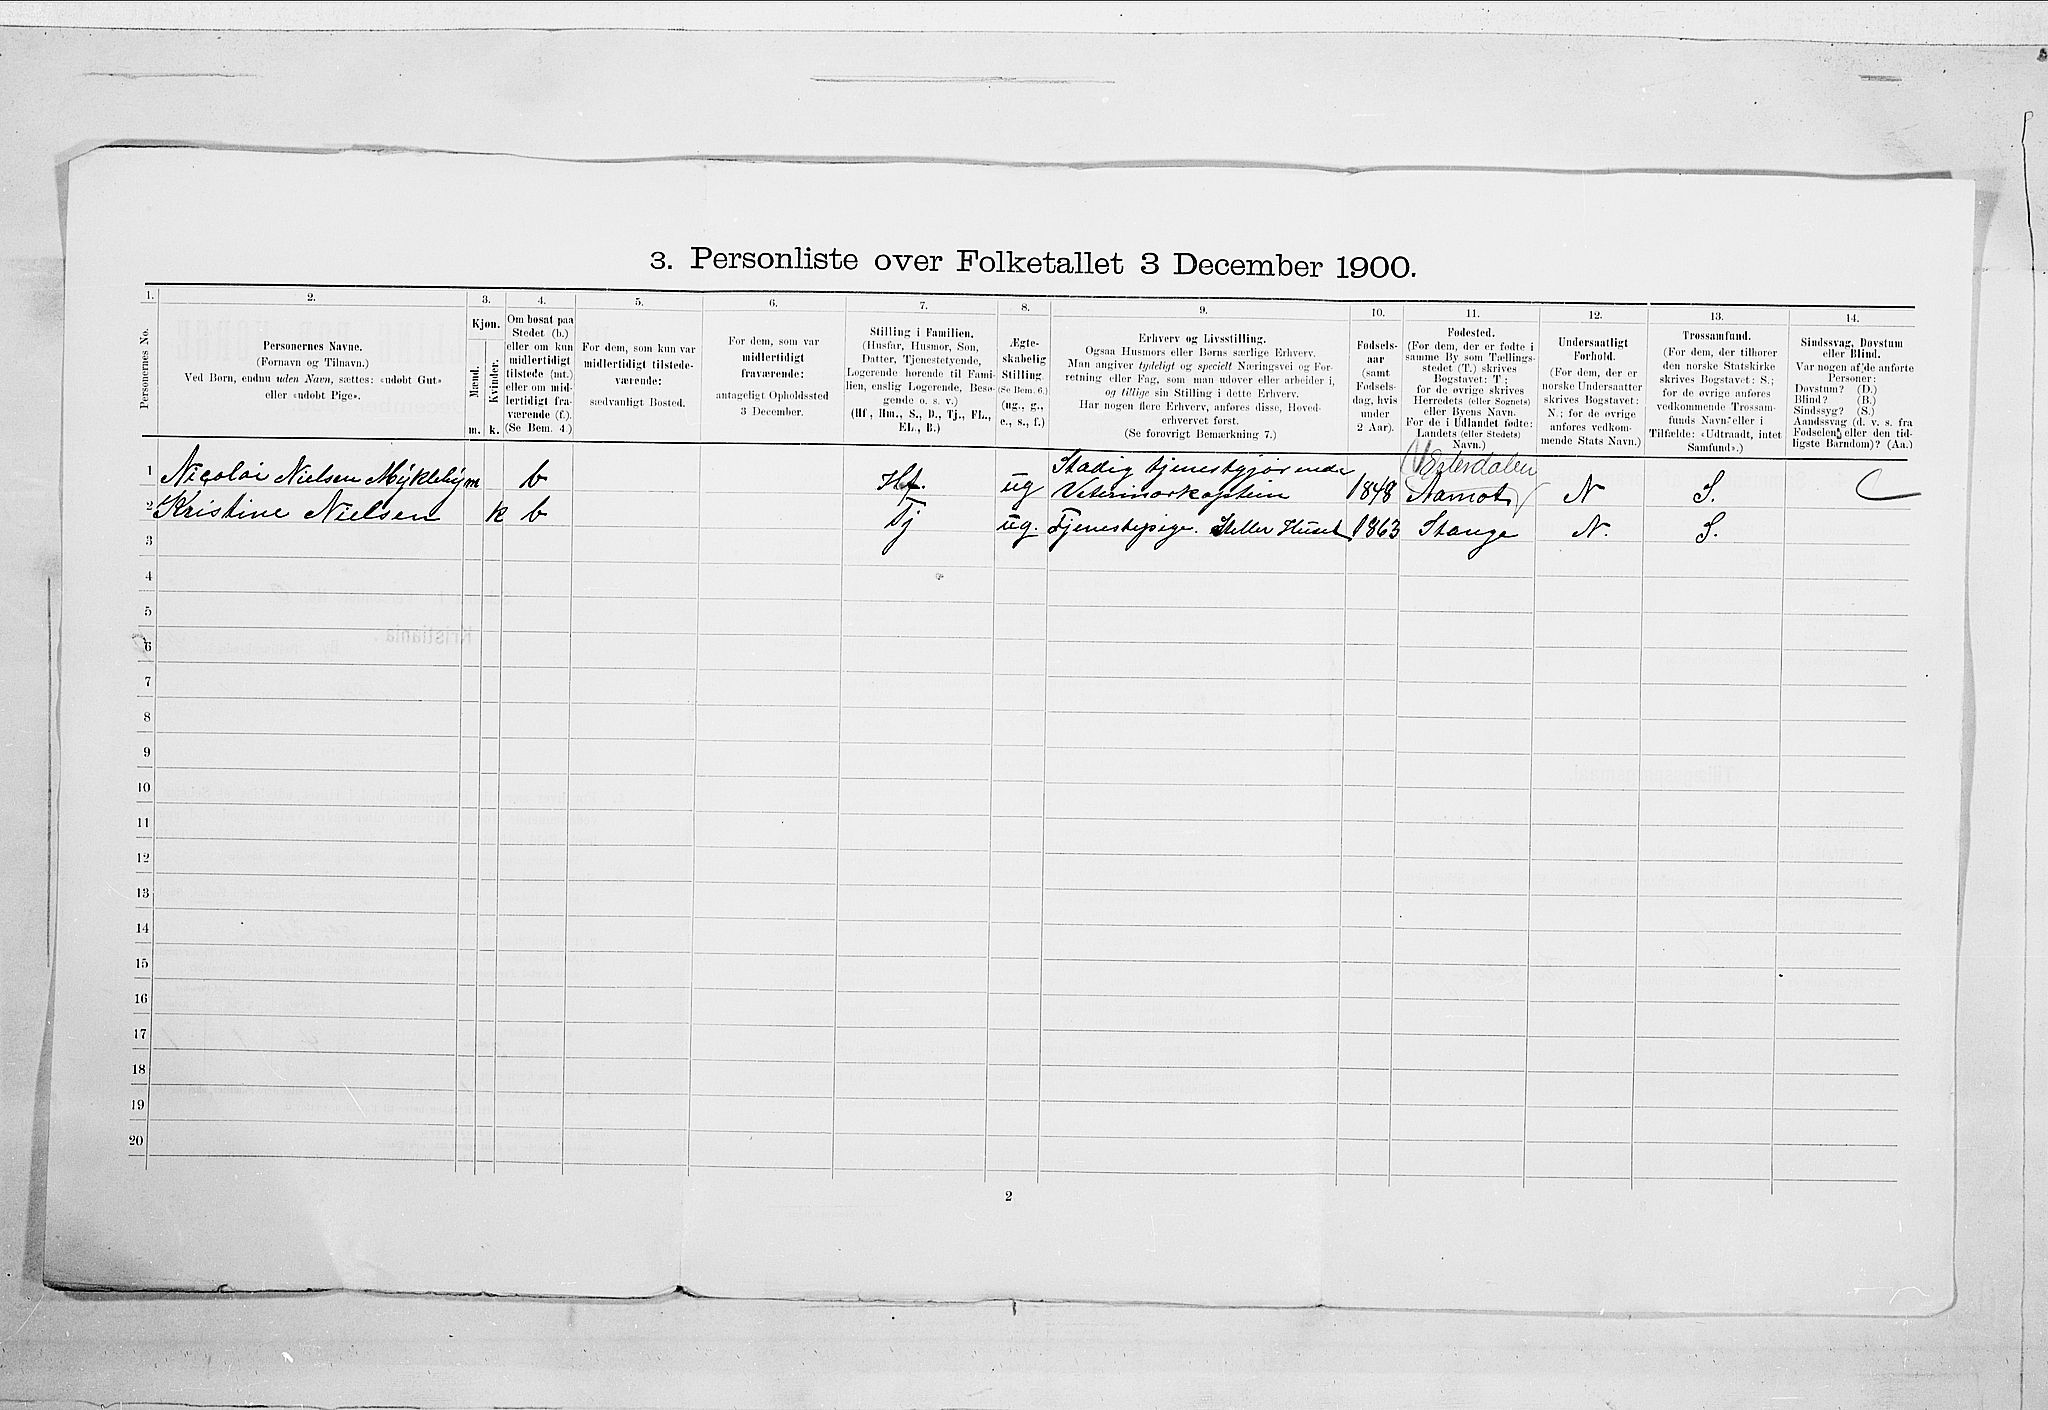 3. Personliste over Folketallet 3 December 1900.
1. 2. 3. 4. 5. 6. 7. 8. 9. 10. 11. 12. 13. 14.
Personernes No.
Personernes Navne.
(Fornavn og Tilnavn.)
Ved Børn, endnu uden Navn, sættes: «udøbt Gut»
eller «udøbt Pige».
Kjøn.
Mænd.
Kvinder.
m. k.
Om bosat paa
Stedet (b.)
eller om kun
midlertidigt
tilstede (mt.)
eller om mid-
lertidigt fra-
værende (f.).
(Se Bem. 4.)
For dem, som kun var
midlertidigt tilstede-
værende:
sædvanligt Bosted.
For dem, som var
midlertidigt
fraværende:
antageligt Opholdssted
3 December.
Stilling i Familien.
(Husfar, Husmor, Søn,
Datter, Tjenestetyende,
Logerende hørende til Fami-
lien, enslig Logerende, Besø-
gende o. s. v.)
(Hf., Hm., S., D., Tj., FL.,
EL., B.)
Ægte-
skabelig
Stilling.
(Se Bem. 6.)
(ug., g.,
e., s., f.)
Erhverv og Livsstilling.
Ogsaa Husmors eller Børns særlige Erhverv.
Man angiver tydeligt og specielt Næringsvei og For-
retning eller Fag, som man udøver eller arbeider i,
og tillige sin Stilling i dette Erhverv.
Har nogen flere Erhverv, anføres disse, Hoved-
erhvervet først.
(Se forøvrigt Bemærkning 7.)
Fødsels-
aar
(samt
Fødsels-
dag, hvis
under
2 Aar).
Fødested.
(For dem, der er fødte i
samme By som Tællings-
stedet (T.) skrives
Bogstavet: T;
for de øvrige skrives
Herredets (eller Sognets)
eller Byens Navn.
For de i Udlandet fødte:
Landets (eller Stedets)
Navn.)
Undersaatligt
Forhold.
(For dem, der er
norske Undersaatter
skrives Bogstavet:
N.; for de øvrige
anføres vedkom-
mende Stats Navn.)
Trossamfund.
(For dem, der tilhører
den norske Statskirke
skrives Bogstavet: S.;
for de øvrige anføres
vedkommende Trossam-
funds Navn eller i
Tilfælde: «Udtraadt, intet
Samfund».)
Sindssvag, Døvstum
eller Blind.
Var nogen af de anførte
Personer:
Døvstum? (D.)
Blind? (B.)
Sindssyg? (S.)
Aandssvag (d. v. s. fra
Fødselen eller den tid-
ligste Barndom)? (Aa.)
1 Nicolai Nielsen Mykleby m b Hf. ug Stadig tjenestgjørende Veterinærkaptein 1848 (Østerdalen Aamot) N S.
2 Kristine Nielsen k b Tj ug. Tjenestepige. Steller Huset 1863 Stange N. S.
3
4
5
6
7
8
9
10
11
12
13
14
15
16
17
18
19
20
2